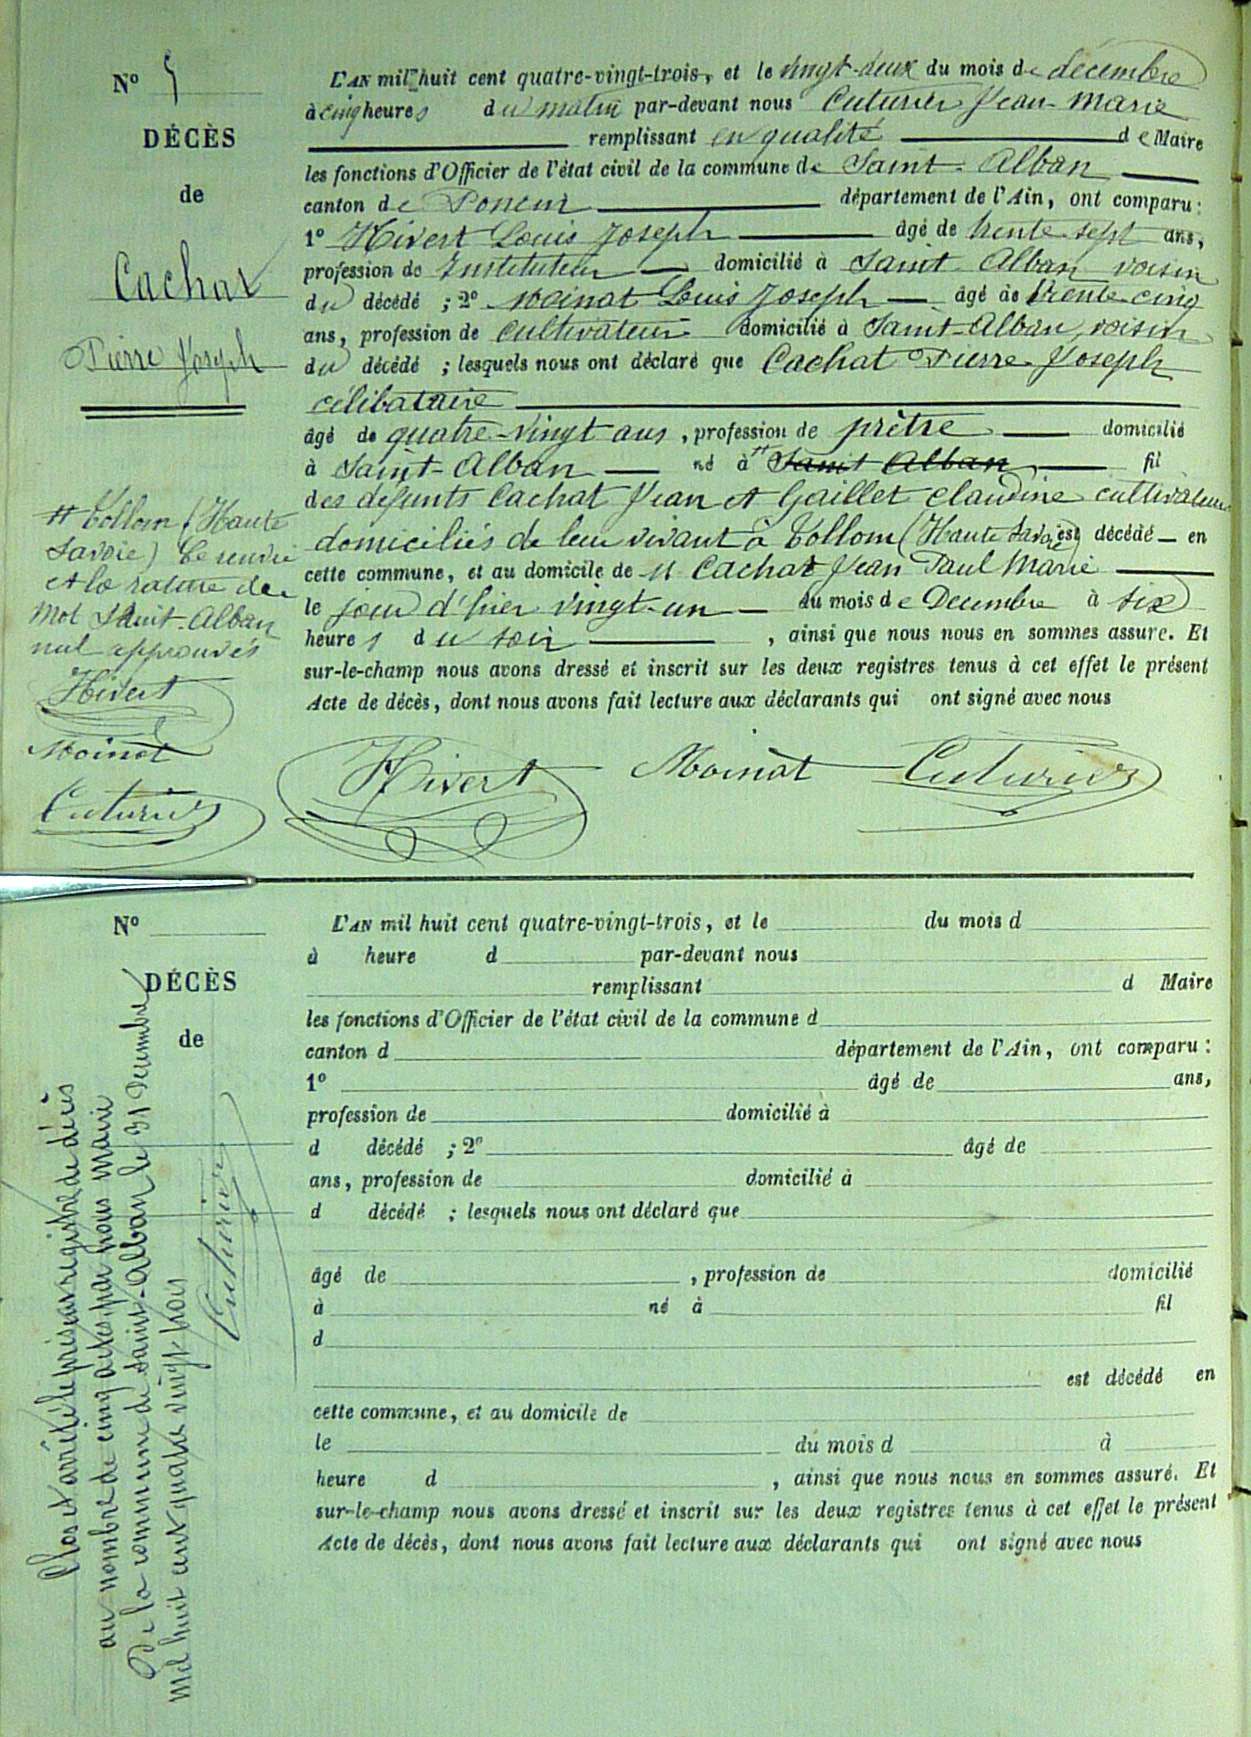 N° 5
DÉCÈS
de
Cachat
Pierre Joseph
L'AN mil huit cent quatre-vingt-trois, et le vingt-deux du mois de décembre
à cinq heures du matin par-devant nous Cuturier Jean-Marie
remplissant en qualité de Maire
les fonctions d'Officier de l'état civil de la commune de Saint-Alban
canton de Poncin département de l'Ain, ont comparu :
1° Hivert Louis Joseph âgé de trente sept ans,
profession de Instituteur domicilié à Saint Alban voisin
du décédé ; 2° Moinat Louis Joseph âgé de trente cinq
ans, profession de cultivateur domicilié à Saint-Alban, voisin
du décédé ; lesquels nous ont déclaré que Cachat Pierre Joseph
célibataire
âgé de quatre-vingt ans, profession de prêtre domicilié
à Saint-Alban né à # Saint Alban fil
des défunts Cachat Jean et Gaillet Claudine cultivateurs
domiciliés de leur vivant à Vollom (Haute Savoie) est décédé en
cette commune, et au domicile de M Cachat Jean Paul Marie
le jour d'hier vingt-un du mois de Decembre à six
heures du soir , ainsi que nous nous en sommes assuré. Et
sur-le-champ nous avons dressé et inscrit sur les deux registres tenus à cet effet le présent
Acte de décès, dont nous avons fait lecture aux déclarants qui ont signé avec nous
# Vollom (Haute
Savoie) Ce renvoi
et la rature des
mot Saint-Alban
nul approuvés
Hivert
Moinat
Cuturier
Hivert Moinat Cuturier
N°
DÉCÈS
de
L'AN mil huit cent quatre-vingt-trois, et le du mois d
à heure d par-devant nous
remplissant d Maire
les fonctions d'Officier de l'état civil de la commune d
canton d département de l'Ain, ont comparu :
1° âgé de ans,
profession de domicilié à
d décédé ; 2° âgé de
ans, profession de domicilié à
d décédé ; lesquels nous ont déclaré que
âgé de , profession de domicilié
à né à fil
d
est décédé en
cette commune, et au domicile de
le du mois d à
heure d , ainsi que nous nous en sommes assuré. Et
sur-le-champ nous avons dressé et inscrit sur les deux registres tenus à cet effet le présent
Acte de décès, dont nous avons fait lecture aux déclarants qui ont signé avec nous
Clos et arrêté le présent registre de décès
au nombre de cinq actes, par nous maire
De la commune de Saint-Alban le 31 Decembre
mil huit cent quatre vingt trois
Cuturier